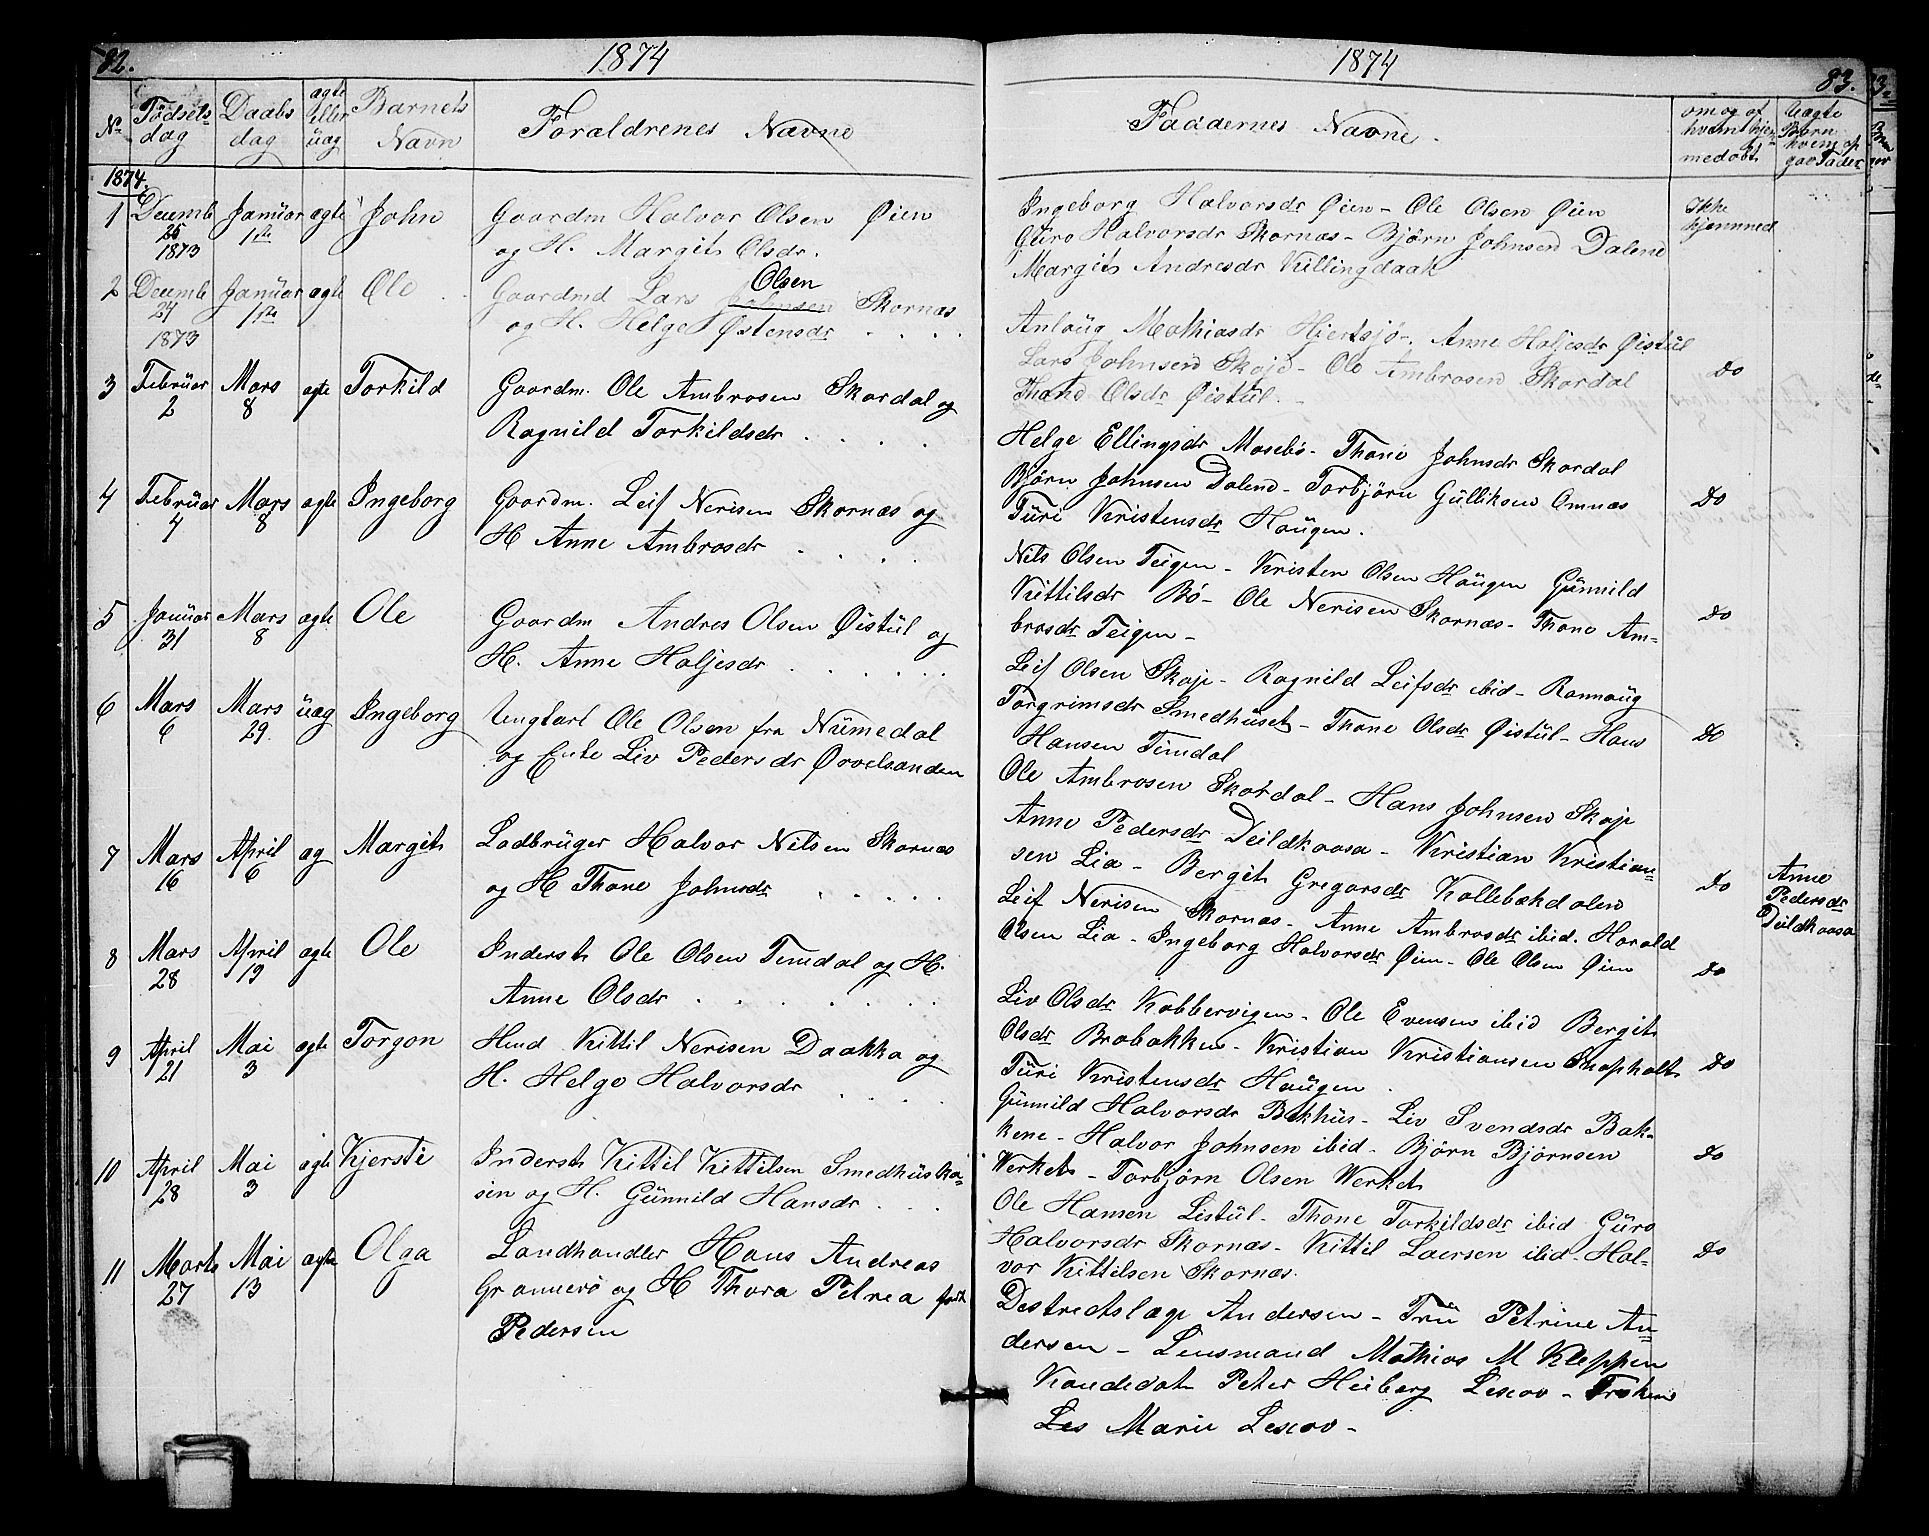 82.
1874
No
Fødsels
dag
Daabs
dag
ægte
Eller
üæg
Barnets
Navn
Forældrenes Navne
1874.
1 Decemb Januar ægte John Gaardm Halvor Olsen Øien
26 1ste
1873
og H. Margit Olsdr.
2 Decemb Januar ægte Ole Gaardmd Lars Johnsen Skornæs
Olsen
27 1ste
og H. Helge Østensdr . . .
1873
3 Februar Mars ægte Torkild Gaardm. Ole Ambrosen Skordal og
2 8
Ragnild Torkildsdr . . . .
4 Februar Mars ægte Ingeborg Gaardm. Leif Nerisen Skornæs og
4 8
H Anne Ambrosdr . . . .
5 Januar Mars ægte Ole Gaardm Andres Olsen Øistül og
31 8
H. Anne Haljesdr . . . . .
6 Mars Mars üæg Ingeborg Ungkarl Ole Olsen fra Nümedal
6 29
og Enke Liv Pedersdr Ørvelsanden
7 Mars April æg Margit Ladbrüger Halvor Nilsen Skornæs
16 6
og H Thone Johnsdr . . . . .
8 Mars April ægte Ole Inderst Ole Olsen Timdal og H.
28 19
Anne Olsdr . . . . . . .
9 April Mai ægte Torgon Hmd Kittil Nerisen Daakka og
21 3
H. Helge Halvorsdr . . . .
10 April Mai ægte Kjersti Inderst Kittil Kittilsen Smedhüska-
28 3
sen og H. Günnild Hansdr . . .
11 Marts Mai ægte Olga Landhandler Hans Andreas
27 13
Grannerø og H Thora Petrea født
Pedersen
1874
83.
Faddernes Navne.
om og af
hvem hjem-
medøbt
Uægte
Børn
hvem op
gav Fader
Ingeborg Halvorsdr Øien - Ole Olsen Øien
Güro Halvorsdr Skornæs - Bjørn Johnsen Dalene
Margit Andresdr Killingdaak
Ikke
hjemmed
Anlaüg Mathiasdr Hjertsjø - Anne Haljesdr Øistül
Lars Johnsen Skøje - Ole Ambrosen Skordal
Thone Olsdr Øistül. -
Do
Helge Ellingsdr Mosebø - Thone Johnsdr Skordal
Bjørn Johnsen Dalene - Torbjørn Gülliksen Omnæs
Türi Kristensdr Haügen.
Do
Nils Olsen Teigen - Kristen Olsen Haügen Günnild
Kittilsdr Bø - Ole Nerisen Skornæs - Thone Am-
brosdr Teigen -
Do
Leif Olsen Skøje - Ragnild Leifsdr ibid - Rannaüg
Torgrimsdr Smedhüset - Thone Olsdr Øistül - Hans
Hansen Timdal
Do
Ole Ambrosen Skordal - Hans Johnsen Skøje
Anne Pedersdr Deildkaasa - Kristian Kristian-
sen Lia - Bergit Gregarsdr Kollebækdalen
Do
Anne
Pedersdr
Deildkaasa
Leif Nerisen Skornæs - Anne Ambrosdr ibid. Harald
Olsen Lia - Ingeborg Halvorsdr Øien - Ole Olsen Øien
Do
Liv Olsdr Kobbervigen - Ole Evensen ibid Bergit
Olsdr Brobakken - Kristian Kristiansen Snapholt
Türi Kristensdr Haügen.
Do
Günnild Halvorsdr Bækhüs - Liv Svendsdr Bak-
kene - Halvor Johnsen ibid - Bjørn Bjørnsen
Werket - Torbjørn Olsen Werket
Do
Ole Hansen Listül - Thone Torkildsdr ibid Güro
Halvorsdr Skornæs - Kittil Laersen ibid - Hal-
vor Kittilsen Skornæs.
Do
Destredtslæge Andersen - Frü Petrine An-
dersen - Lensmand Mathias M Kleppen
Kandedat Peter Heiberg Lescov - Frøken
Les Marie Lescov -